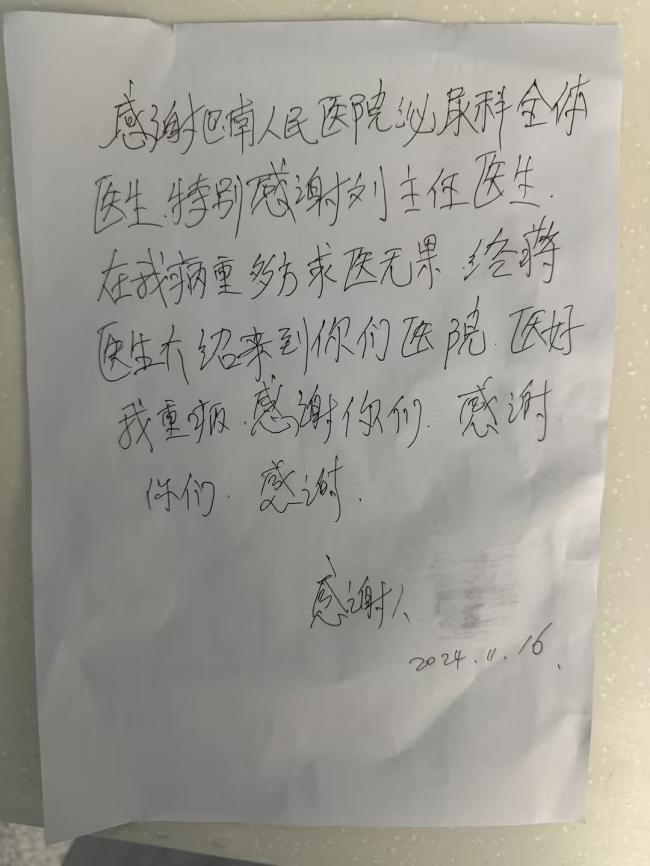 感谢巴南人民医院泌尿科全体
医生.特别感谢刘主任医生.
在我病重多方求医无果 经蒋
医生介绍来到你们医院.医好
我重病.感谢你们.感谢
你们.感谢.
感谢人
2024.11.16.